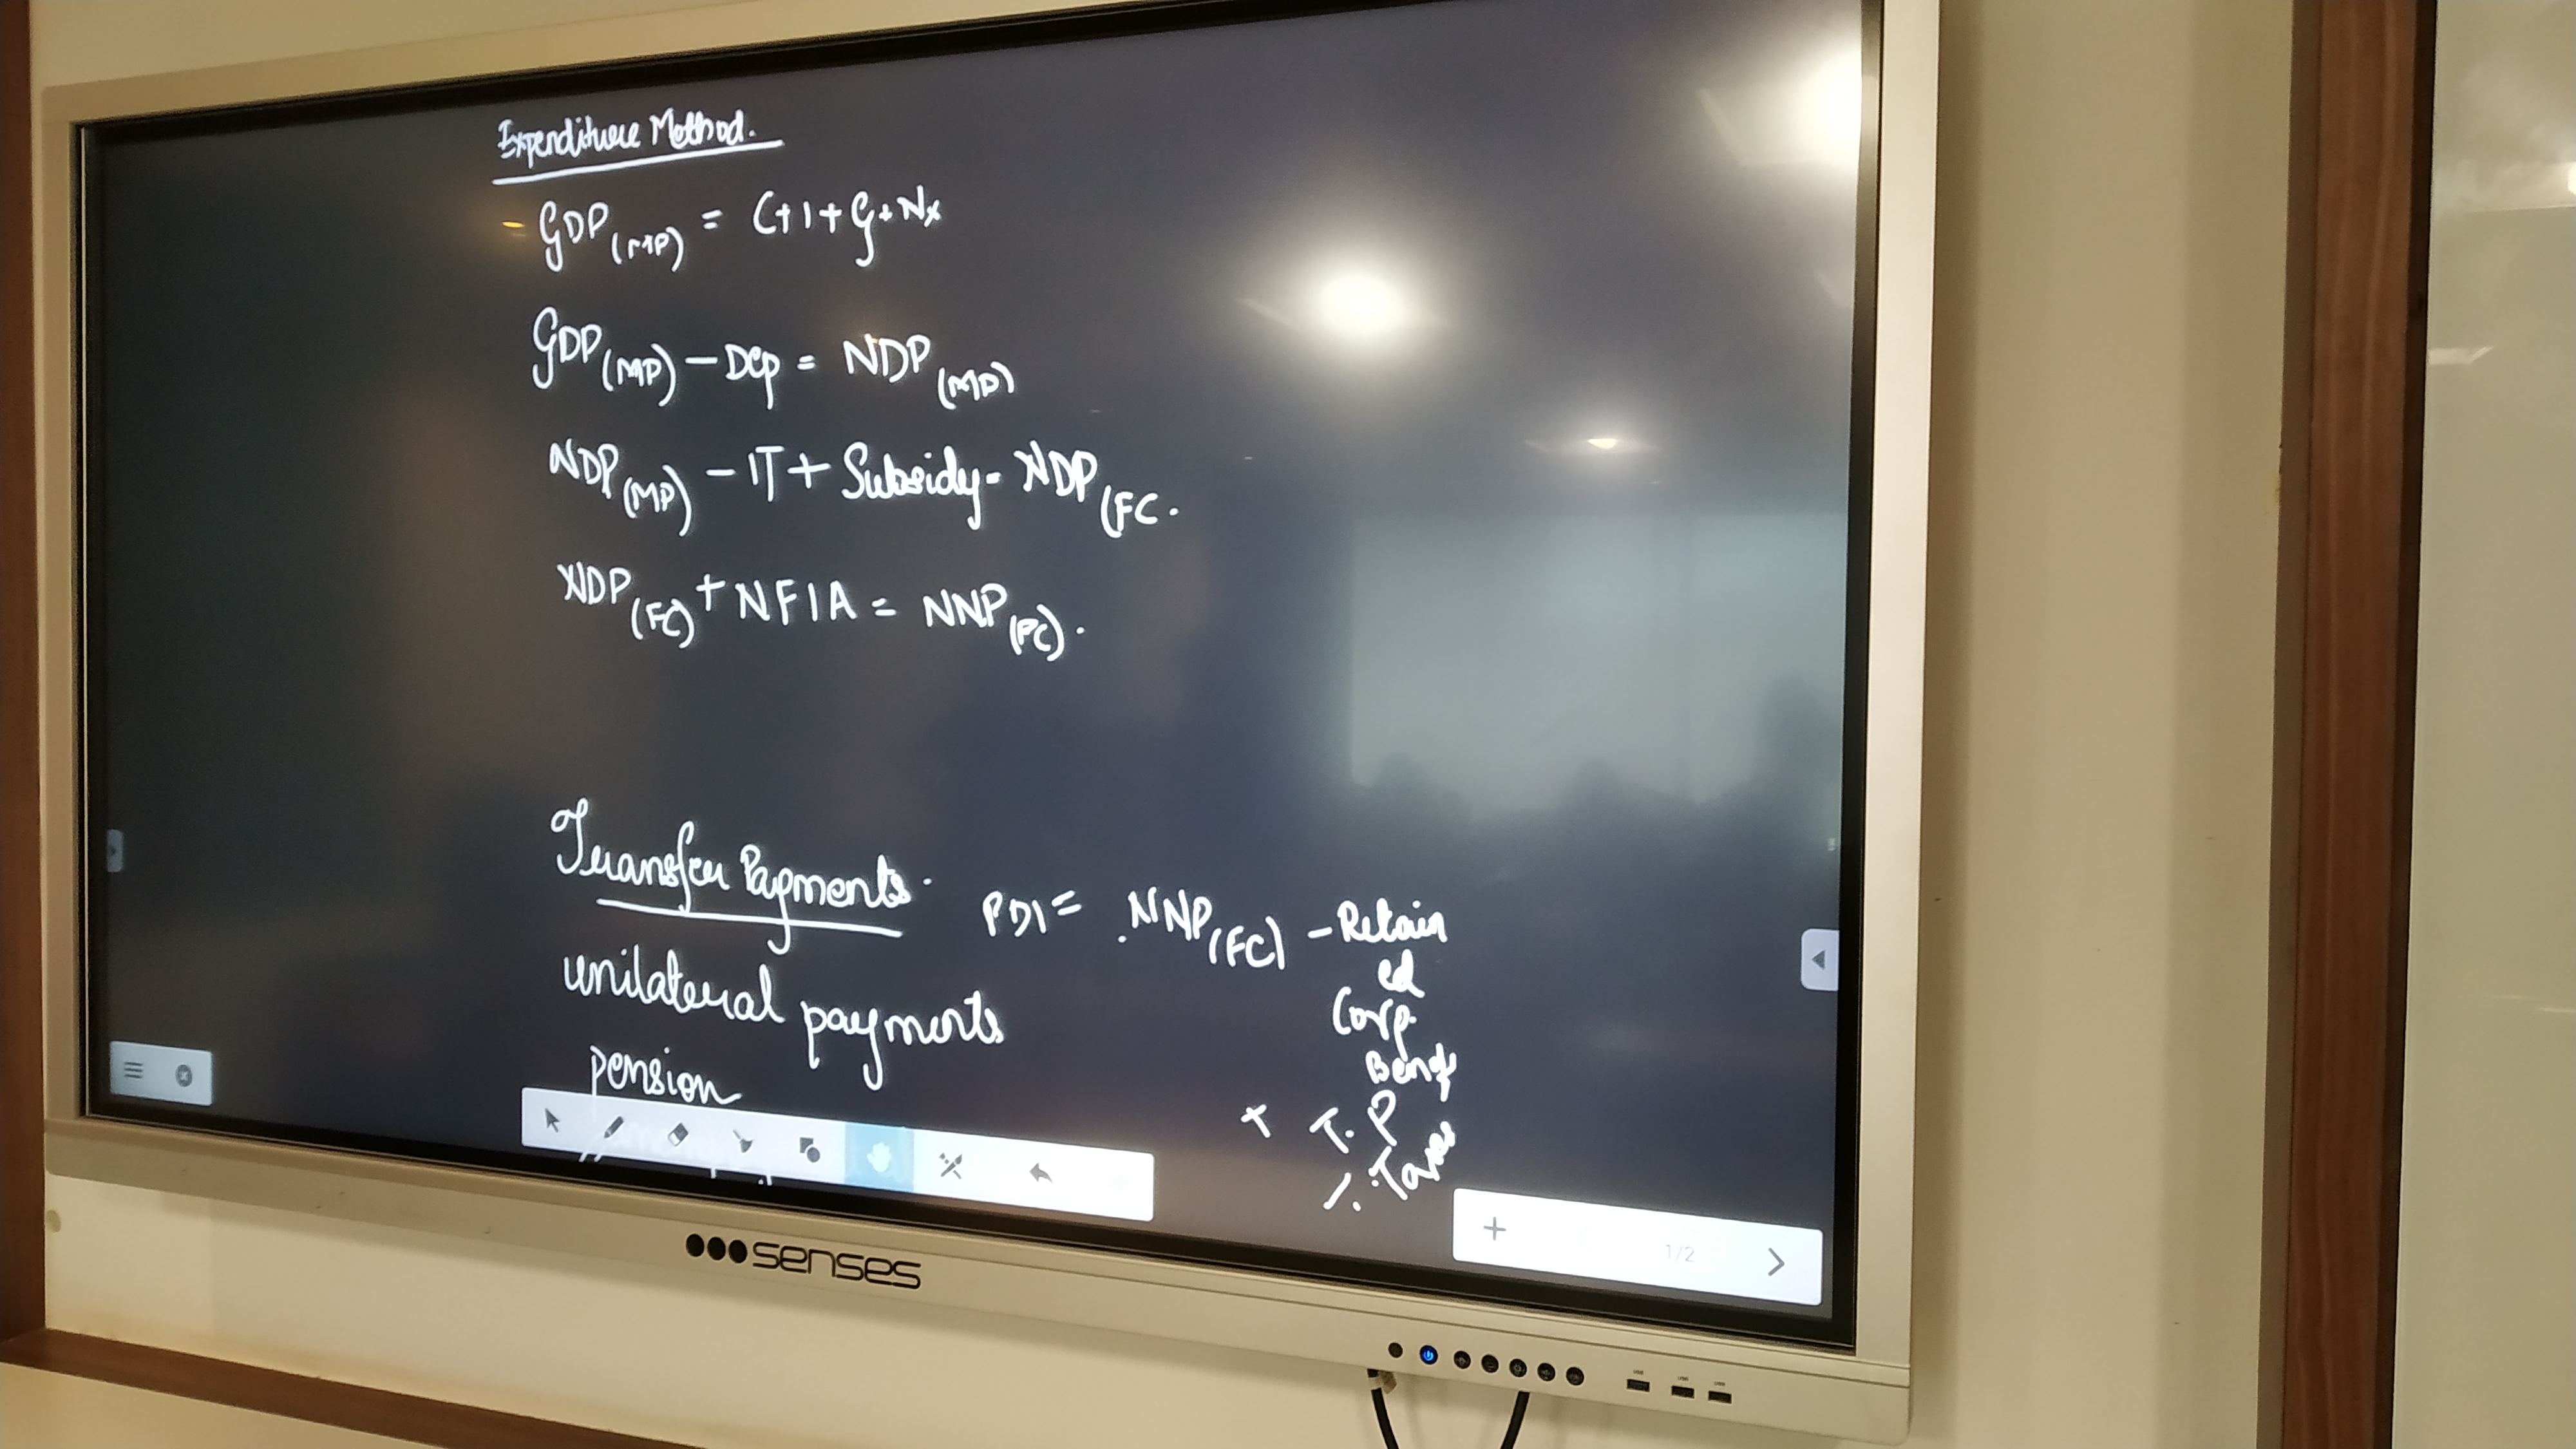 Expenditure Method.
GDP(MP) = C+I+G+Nx
GDP(MP) - Dep = NDP(MP)
NDP(MP) - IT + Subsidy = NDP(FC.
NDP(FC) + NFIA = NNP(FC).
Transfer Payments.
unilateral payments
pension
PDI = NNP(FC) - Retain
ed
Corp.
+ T.P
Taxes
1/2
senses